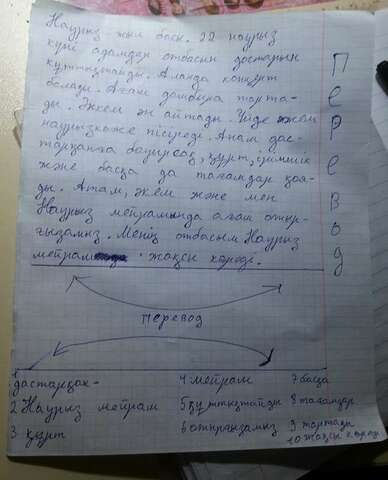 Наурыз жыл басы. 22 наурыз
күні адамдар отбасын достарын
құттықтайды. Алаңда концерт
болады. Ағам домбыра тарта-
ды. Әкем ән айтады. Үйде әжем
наурызкөже пісіреді. Анам дас-
тарқанға бауырсақ, құрт, ірімшік
және басқа да тағамдар қоя-
ды. Атам, әкем және мен
Наурыз мейрамында ағаш отыр-
ғызамыз. Менің отбасым Наурыз
мейрамын жақсы көреді.
Перевод
Перевод
1 дастарқан-
2 Наурыз мейрам
3 құрт
4 мейрам
5 құттықтайды
6 отырғызамыз
7 басқа
8 тағамдар
9 тартады
10 жақсы көреді